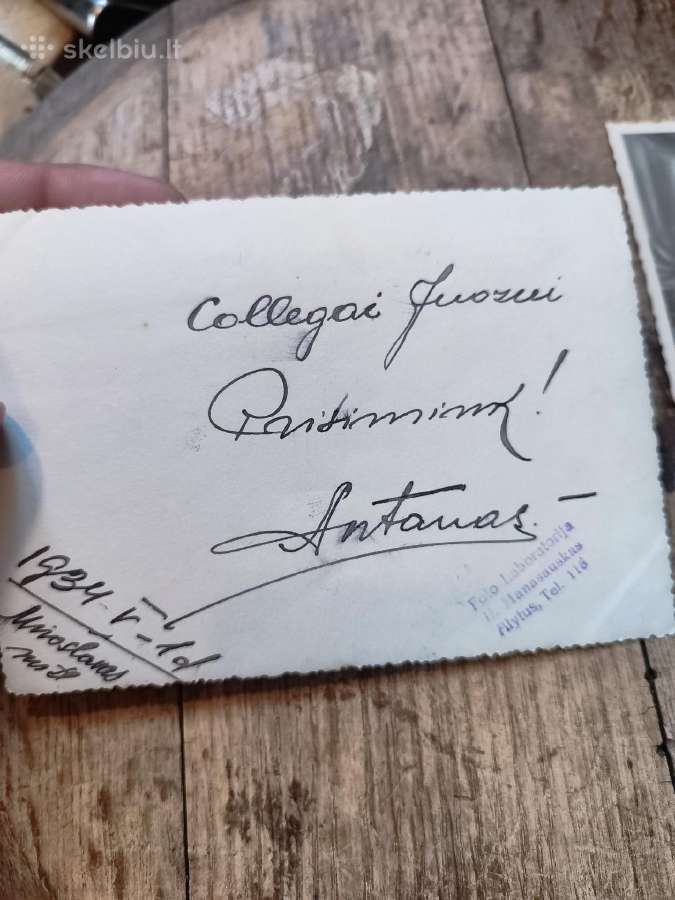 skelbiu.lt
Collegai Juozui
Prisimink!
Antanas. –
1934-V-1d
Miroslavas
Foto Laboratorija
Manasauskas
Alytus, Tel. 116